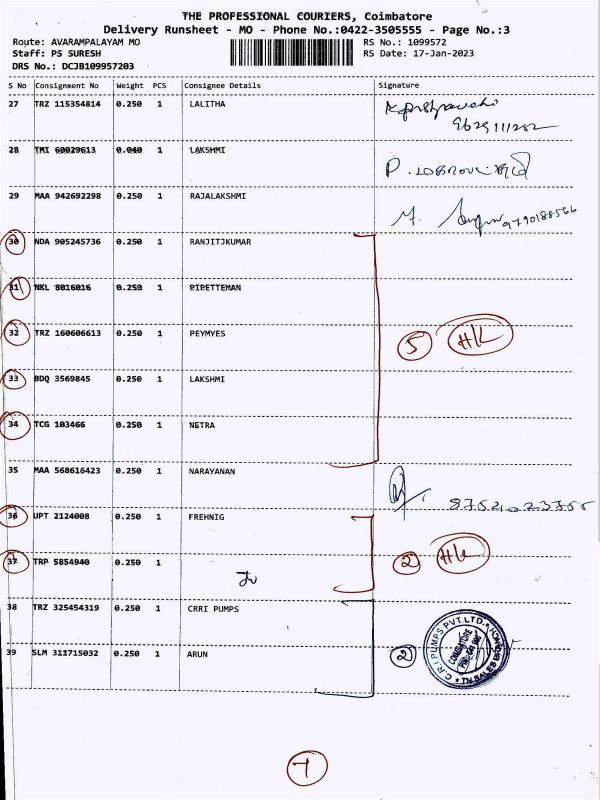 THE PROFESSIONAL COURIERS, Coimbatore
Delivery Runsheet - MO - Phone No.:0422-3505555 - Page No.:3
Route: AVARAMPALAYAM MO
Staff: PS SURESH
DRS No.: DCJB109957203
RS No.: 1099572
RS Date: 17-Jan-2023
S No Consignment No Weight PCS Consignee Details Signature
27 TRZ 115354814 0.250 1 LALITHA
9629111252
28 TMI 60029613 0.040 1 LAKSHMI
29 MAA 942692298 0.250 1 RAJALAKSHMI
9790188566
30 NDA 905245736 0.250 1 RANJITJKUMAR
31 NKL 8016016 0.250 1 PIPETTEMAN
32 TRZ 160606613 0.250 1 PEYMYES
5 HK
33 BDQ 3569845 0.250 1 LAKSHMI
34 TCG 103466 0.250 1 NETRA
35 MAA 568616423 0.250 1 NARAYANAN
36 UPT 2124008 0.250 1 FREHNIG
37 TRP 5854940 0.250 1
2 HK
38 TRZ 325454319 0.250 1 CRRI PUMPS
39 SLM 311715032 0.250 1 ARUN
2
C.R.I PUMPS PVT.LTD.
COIMBATORE